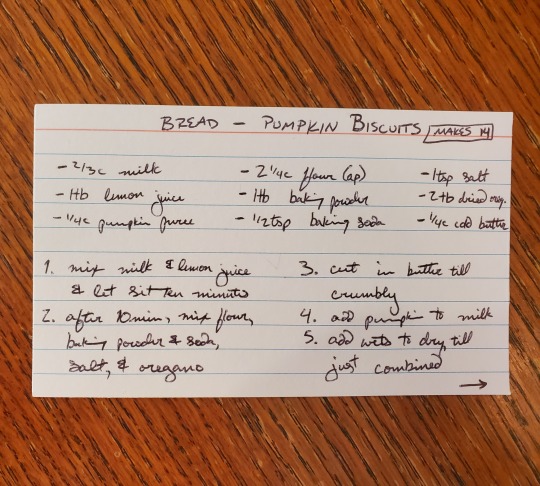 BREAD - PUMPKIN BISCUITS MAKES 14
- 2/3c milk
- 1tb lemon juice
- 1/4c pumpkin puree
- 2 1/4c flour (ap)
- 1tb baking powder
- 1/2tsp baking soda
- 1tsp salt
- 2tb dried oreg.
- 1/4c cold butter
1. mix milk & lemon juice
& let sit ten minutes
2. after 10min, mix flour,
baking powder & soda,
salt, & oregano
3. cut in butter till
crumbly
4. add pumpkin to milk
5. add wets to dry, till
just combined
→